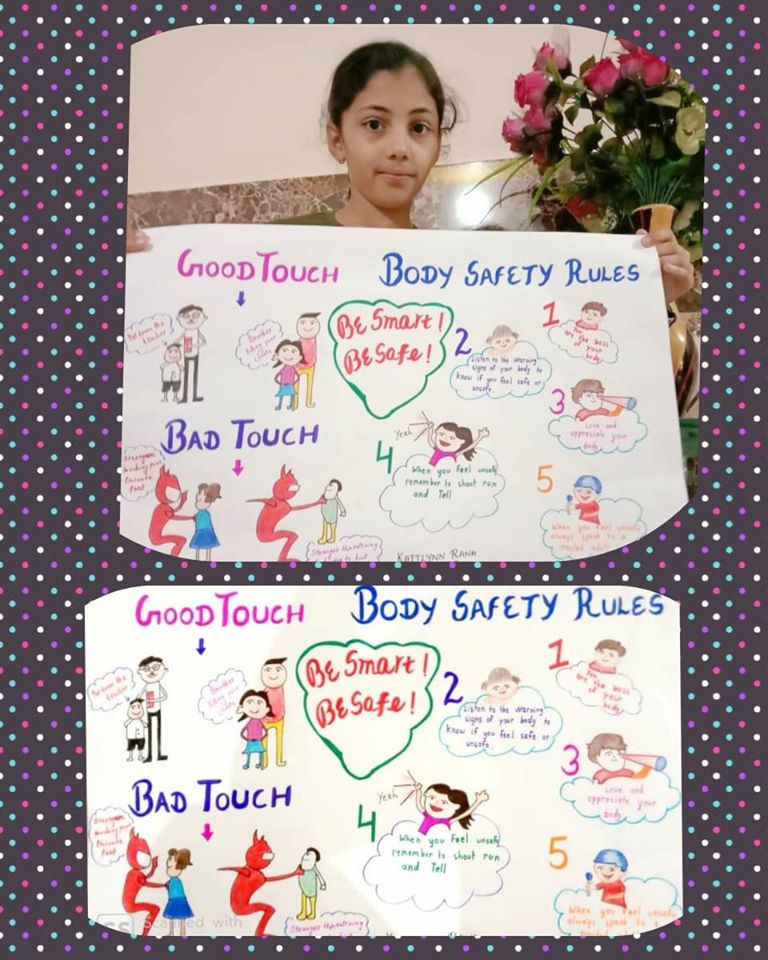 GOOD TOUCH
BODY SAFETY RULES
Pat from the
teacher
Brother
taking your
Be Smart!
BE Safe!
1
You
are the boss
of your
body
2
Listen to the warning
signs of your body to
know if you feel safe or
unsafe.
3
Love and
appreciate your
body
BAD TOUCH
Strangers
touching your
Private
Part
Stranger threatening
4
Yeah
When you feel unsafe
remember to shout run
and Tell
5
When you feel unsafe
always speak to a
trusted adult
KAITLYNN RANA
GOOD TOUCH
BODY SAFETY RULES
Pat from the
teacher
Brother
taking your
Be Smart!
BE Safe!
1
You
are the boss
of your
body
2
Listen to the warning
signs of your body to
know if you feel safe or
unsafe.
3
Love and
appreciate your
body
BAD TOUCH
Strangers
touching your
Private
Part
Stranger threatening
4
Yeah
When you feel unsafe
remember to shout run
and Tell
5
When you feel unsafe
always speak to a
CS Scanned with